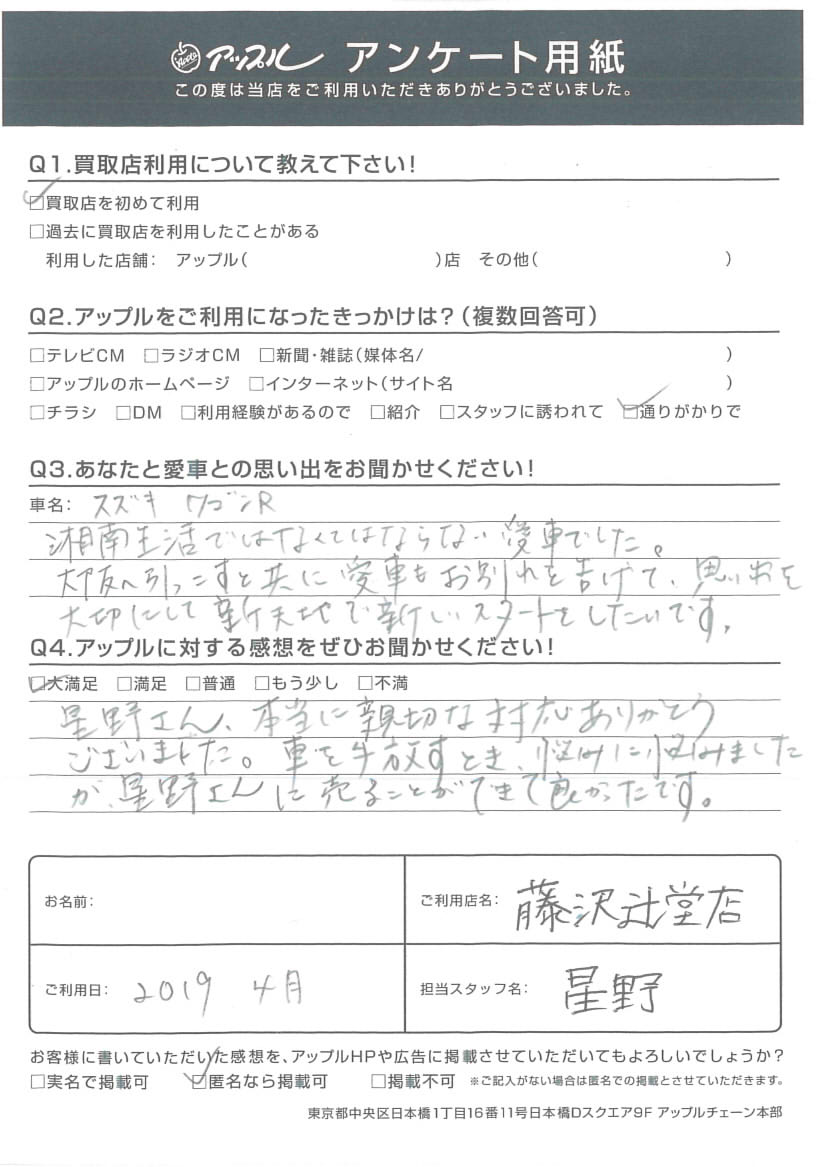 Apple アップル アンケート用紙
この度は当店をご利用いただきありがとうございました。
Q1.買取店利用について教えて下さい！
☑買取店を初めて利用
□過去に買取店を利用したことがある
利用した店舗： アップル（ ）店 その他（ ）
Q2.アップルをご利用になったきっかけは？（複数回答可）
□テレビCM □ラジオCM □新聞・雑誌（媒体名/ ）
□アップルのホームページ □インターネット（サイト名 ）
□チラシ □DM □利用経験があるので □紹介 □スタッフに誘われて ☑通りがかりで
Q3.あなたと愛車との思い出をお聞かせください！
車名： スズキ ワゴンR
湘南生活ではなくてはならない愛車でした。
大阪へ引っこすと共に愛車もお別れを告げて、思い出を
大切にして新天地で新しいスタートをしたいです。
Q4.アップルに対する感想をぜひお聞かせください！
☑大満足 □満足 □普通 □もう少し □不満
星野さん、本当に親切な対応ありがとう
ございました。車を手放すとき、悩みに悩みました
が、星野さんに売ることができて良かったです。
お名前：
ご利用店名： 藤沢辻堂店
ご利用日： 2019 4月
担当スタッフ名： 星野
お客様に書いていただいた感想を、アップルHPや広告に掲載させていただいてもよろしいでしょうか？
□実名で掲載可 ☑匿名なら掲載可 □掲載不可 ※ご記入がない場合は匿名での掲載とさせていただきます。
東京都中央区日本橋1丁目16番11号日本橋Dスクエア9F アップルチェーン本部